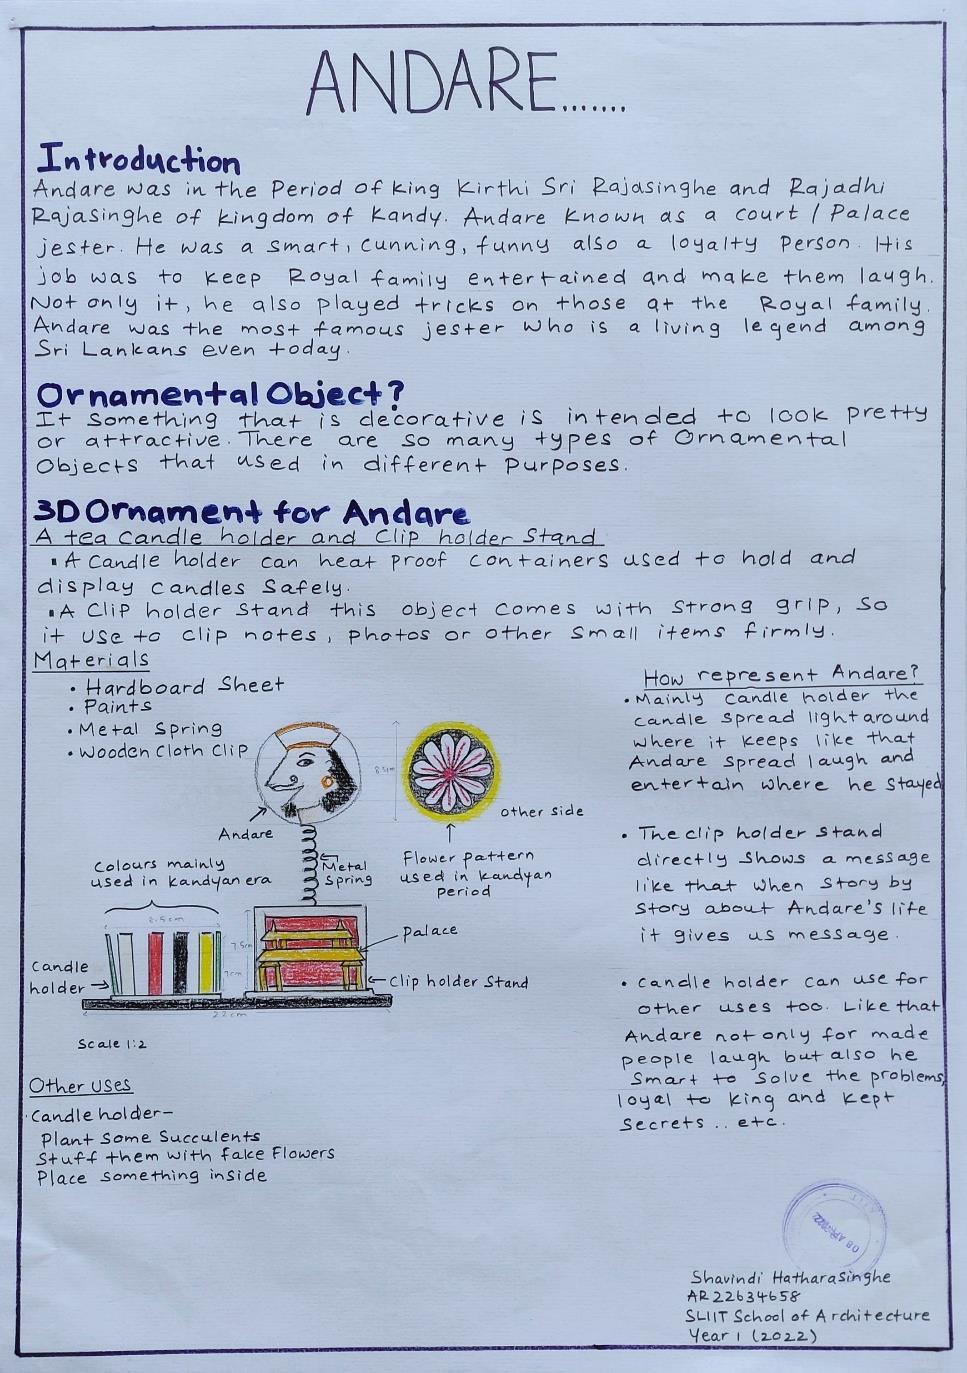 ANDARE.......
Introduction
Andare was in the Period of King Kirthi Sri Rajasinghe and Rajadhi
Rajasinghe of kingdom of Kandy. Andare Known as a court / Palace
jester. He was a smart, cunning, funny also a loyalty Person. His
job was to keep Royal family entertained and make them laugh.
Not only it, he also played tricks on those at the Royal family.
Andare was the most famous jester who is a living legend among
Sri Lankans even today.
Ornamental Object?
It something that is decorative is intended to look pretty
or attractive. There are so many types of Ornamental
Objects that used in different Purposes.
3D Ornament for Andare
A tea Candle holder and Clip holder Stand
▪ A Candle holder can heat proof containers used to hold and
display candles Safely.
▪ A Clip holder Stand this object comes with Strong grip, so
it use to clip notes, photos or other small items firmly.
Materials
• Hardboard Sheet
• Paints
• Metal Spring
• Wooden Cloth Clip
8.5cm
Andare
other side
Flower pattern
used in Kandyan
Period
Metal
Spring
Colours mainly
used in Kandyan era
8.5cm
7.5cm
7cm
Palace
Candle
holder
Clip holder Stand
22cm
Scale 1:2
Other uses
Candle holder-
Plant Some Succulents
Stuff them with fake Flowers
Place something inside
How represent Andare?
• Mainly candle holder the
candle spread light around
where it keeps like that
Andare spread laugh and
entertain where he stayed
• The clip holder stand
directly shows a message
like that when story by
story about Andare's life
it gives us message.
• Candle holder can use for
other uses too. Like that
Andare not only for made
people laugh but also he
Smart to solve the problems,
loyal to King and kept
Secrets .. etc.
08 APR 2022
Shavindi Hatharasinghe
AR22634658
SLIIT School of Architecture
Year 1 (2022)